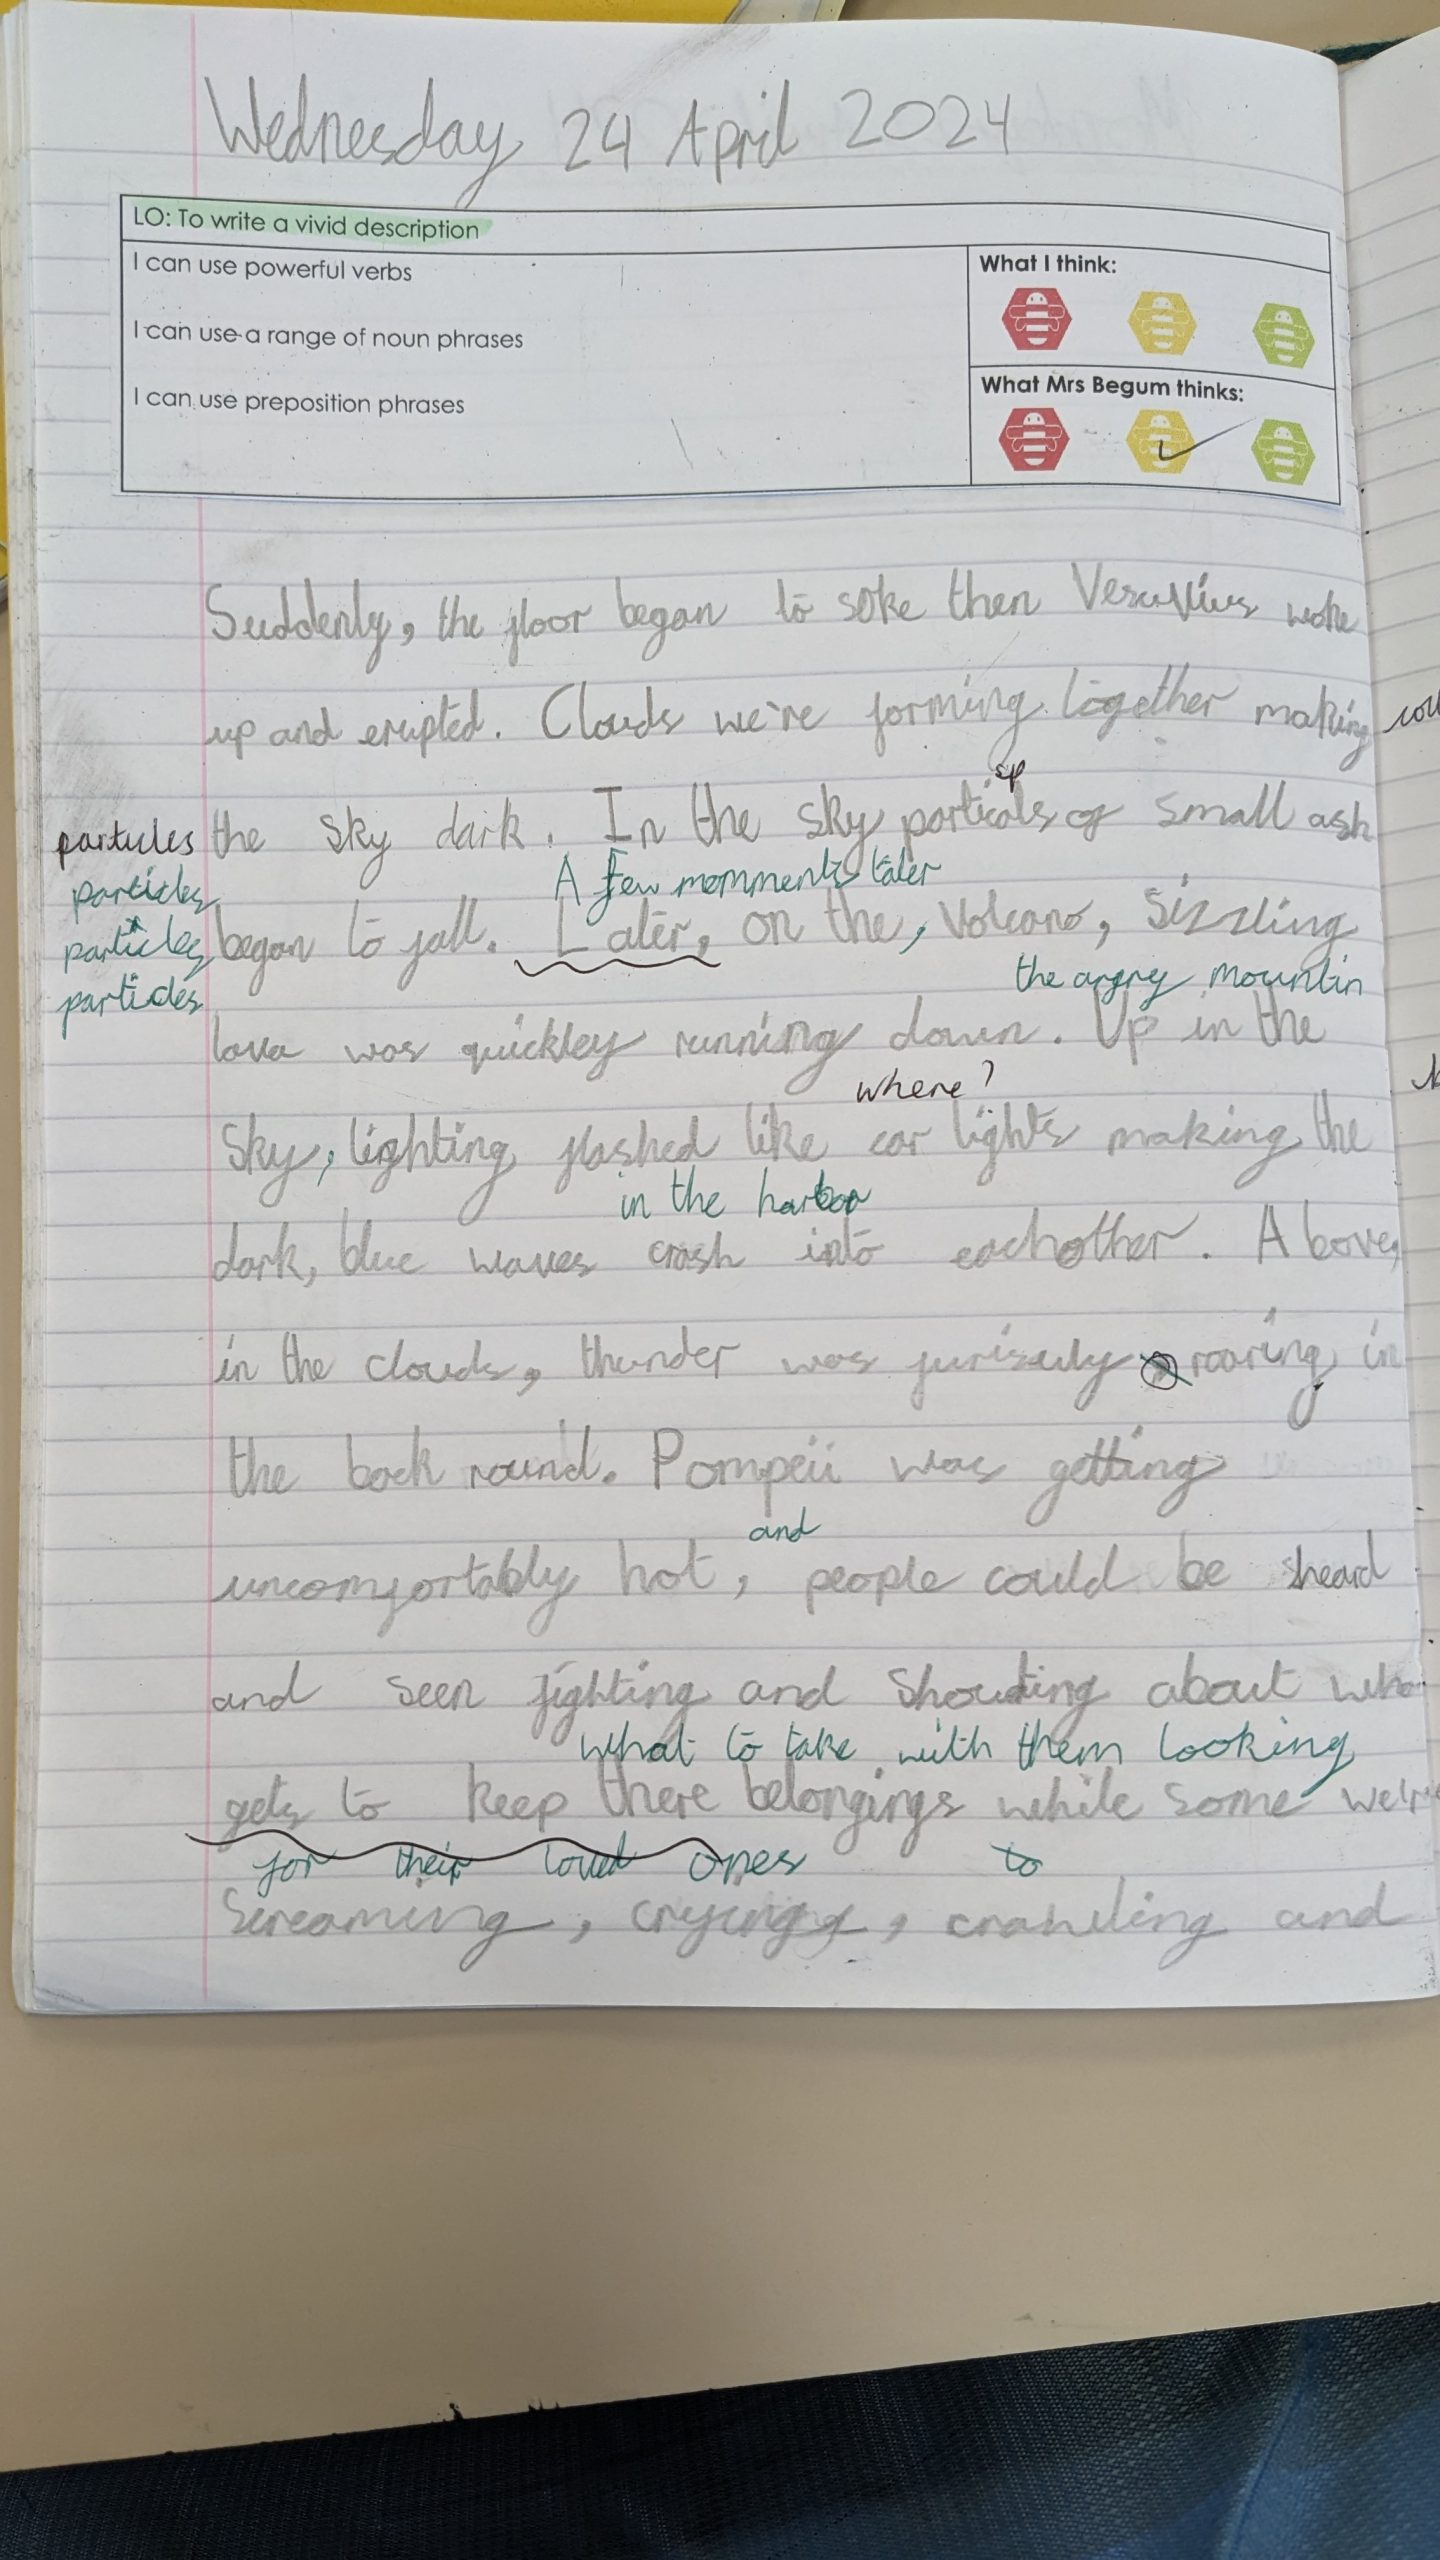 Wednesday 24 April 2024
LO: To write a vivid description
I can use powerful verbs
I can use a range of noun phrases
I can use preposition phrases
What I think:
What Mrs Begum thinks:
Suddenly, the floor began to soke then Vesuvius woke
up and erupted. Clouds we're forming together making
sp
particles the sky dark. In the sky particals of small ash
particles
A few momments later
particles began to fall. Later, on the, Volcano, Sizzling
particles
the angry mountin
lava was quickley running down. Up in the
where?
Sky, lighting flashed like car lights making the
in the harbor
dark, blue waves crash into eachother. Above,
in the clouds, thunder was furisuly roaring in
the back round. Pompeii was getting
and
uncomfortably hot, people could be heard
and seen fighting and shouting about who
what to take with them looking
gets to keep there belongings while some
for their loved ones to
Screaming, crying, crawling and